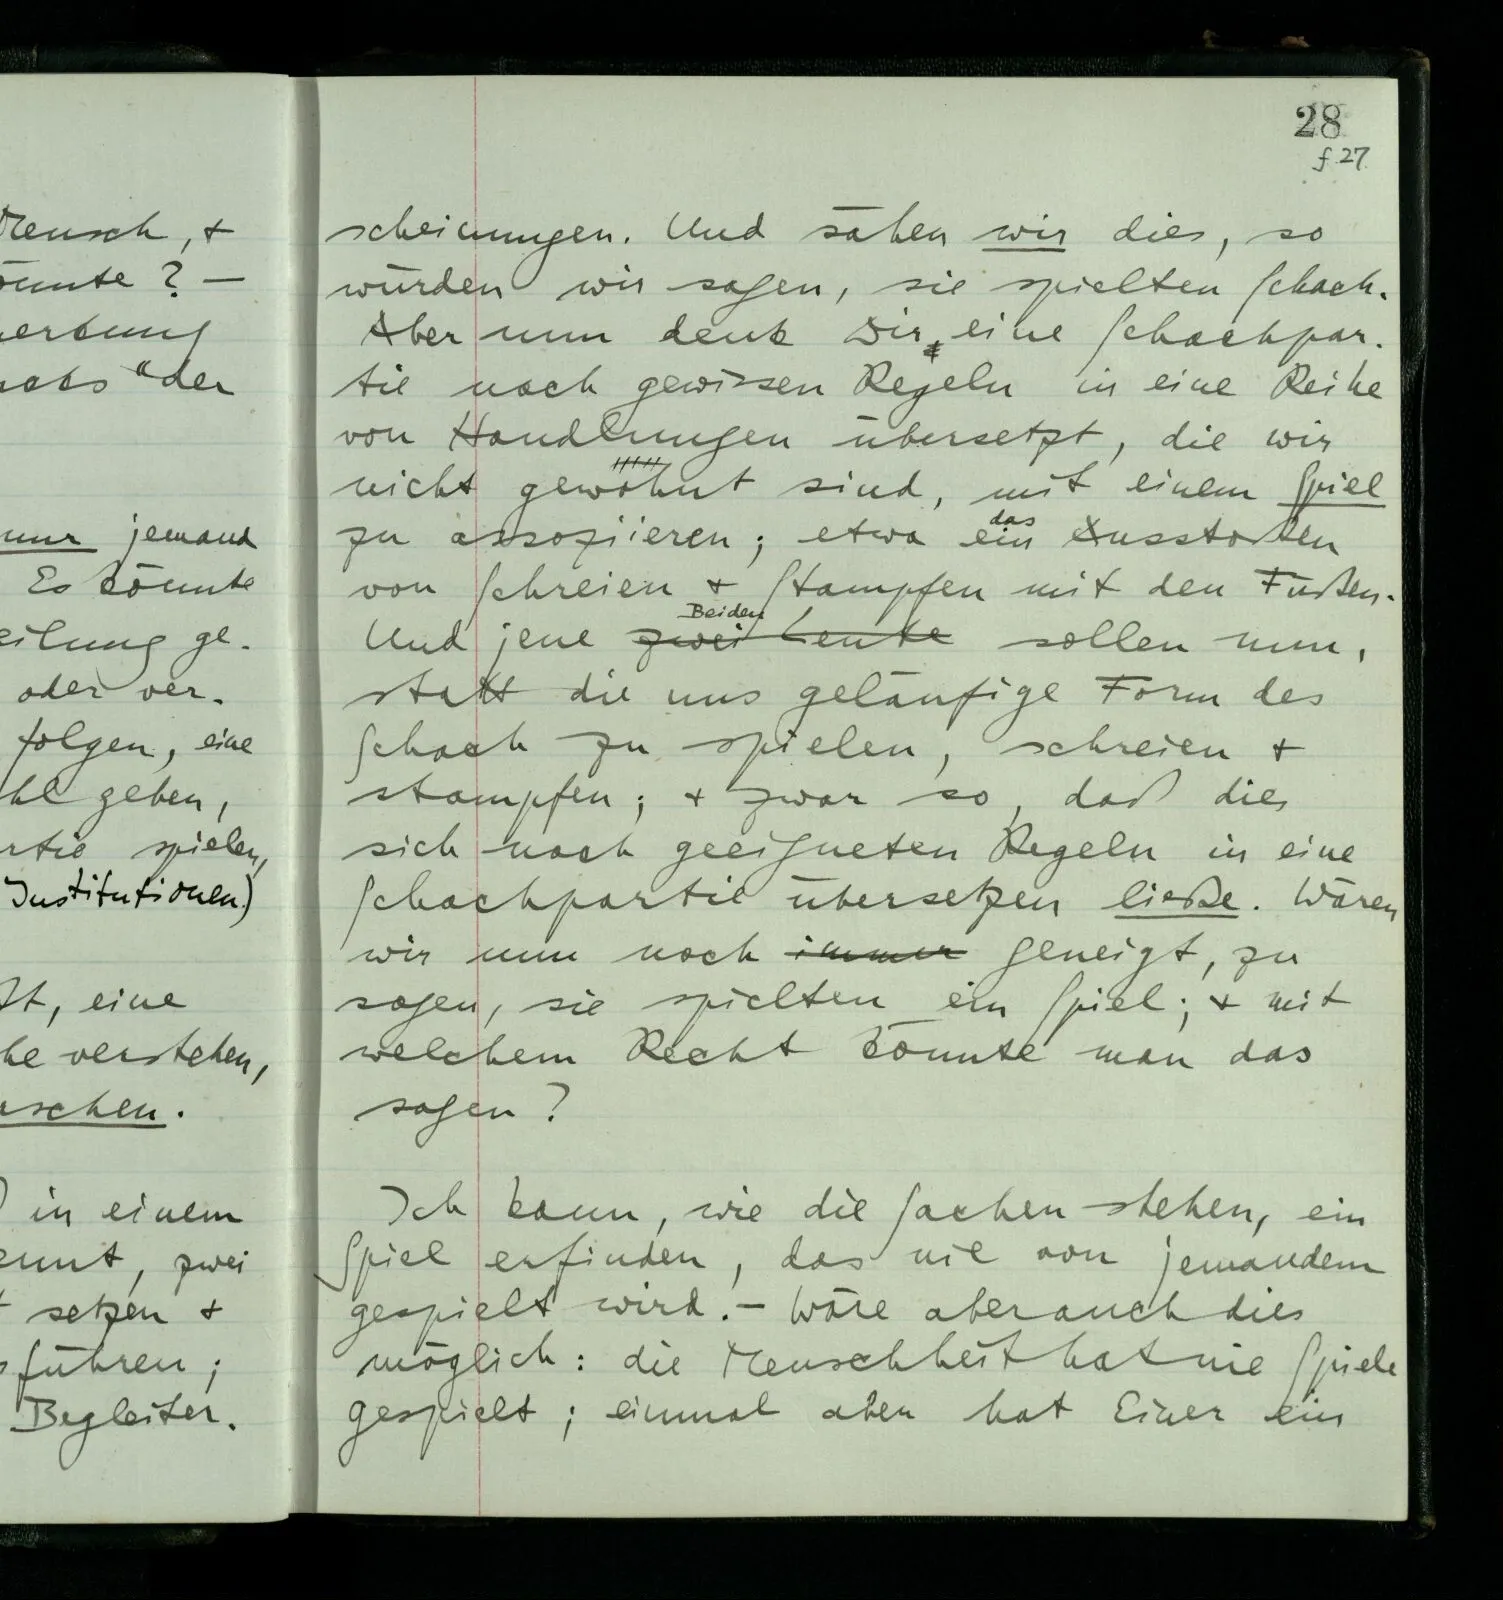 Mensch, +
önnte? –
erbung
" der
nur jemand
Es könnte
eilung ge-
oder ver-
folgen, eine
hl geben,
rtie spielen,
Institutionen)
st, eine
he verstehen,
schen.
in einem
ennt, zwei
setzen +
führen;
Begleiter.
28
f. 27
scheinungen. Und sähen wir dies, so
würden wir sagen, sie spielten Schach.
Aber nun denk Dir eine Schachpar-
tie nach gewissen Regeln in eine Reihe
von Handlungen übersetzt, die wir
nicht gewöhnt sind, mit einem Spiel
das
zu assoziieren; etwa ein Ausstoßen
von Schreien + Stampfen mit den Füßen.
Beiden
Und jene zwei Leute sollen nun,
statt die uns geläufige Form des
Schach zu spielen, schreien +
stampfen; + zwar so, daß dies
sich nach geeigneten Regeln in eine
Schachpartie übersetzen ließe. Wären
wir nun noch immer geneigt, zu
sagen, sie spielten ein Spiel; + mit
welchem Recht könnte man das
sagen?
Ich kann, wie die Sachen stehen, ein
Spiel erfinden, das nie von jemandem
gespielt wird. – Wäre aber auch dies
möglich: die Menschheit hat nie Spiele
gespielt; einmal aber hat Einer ein